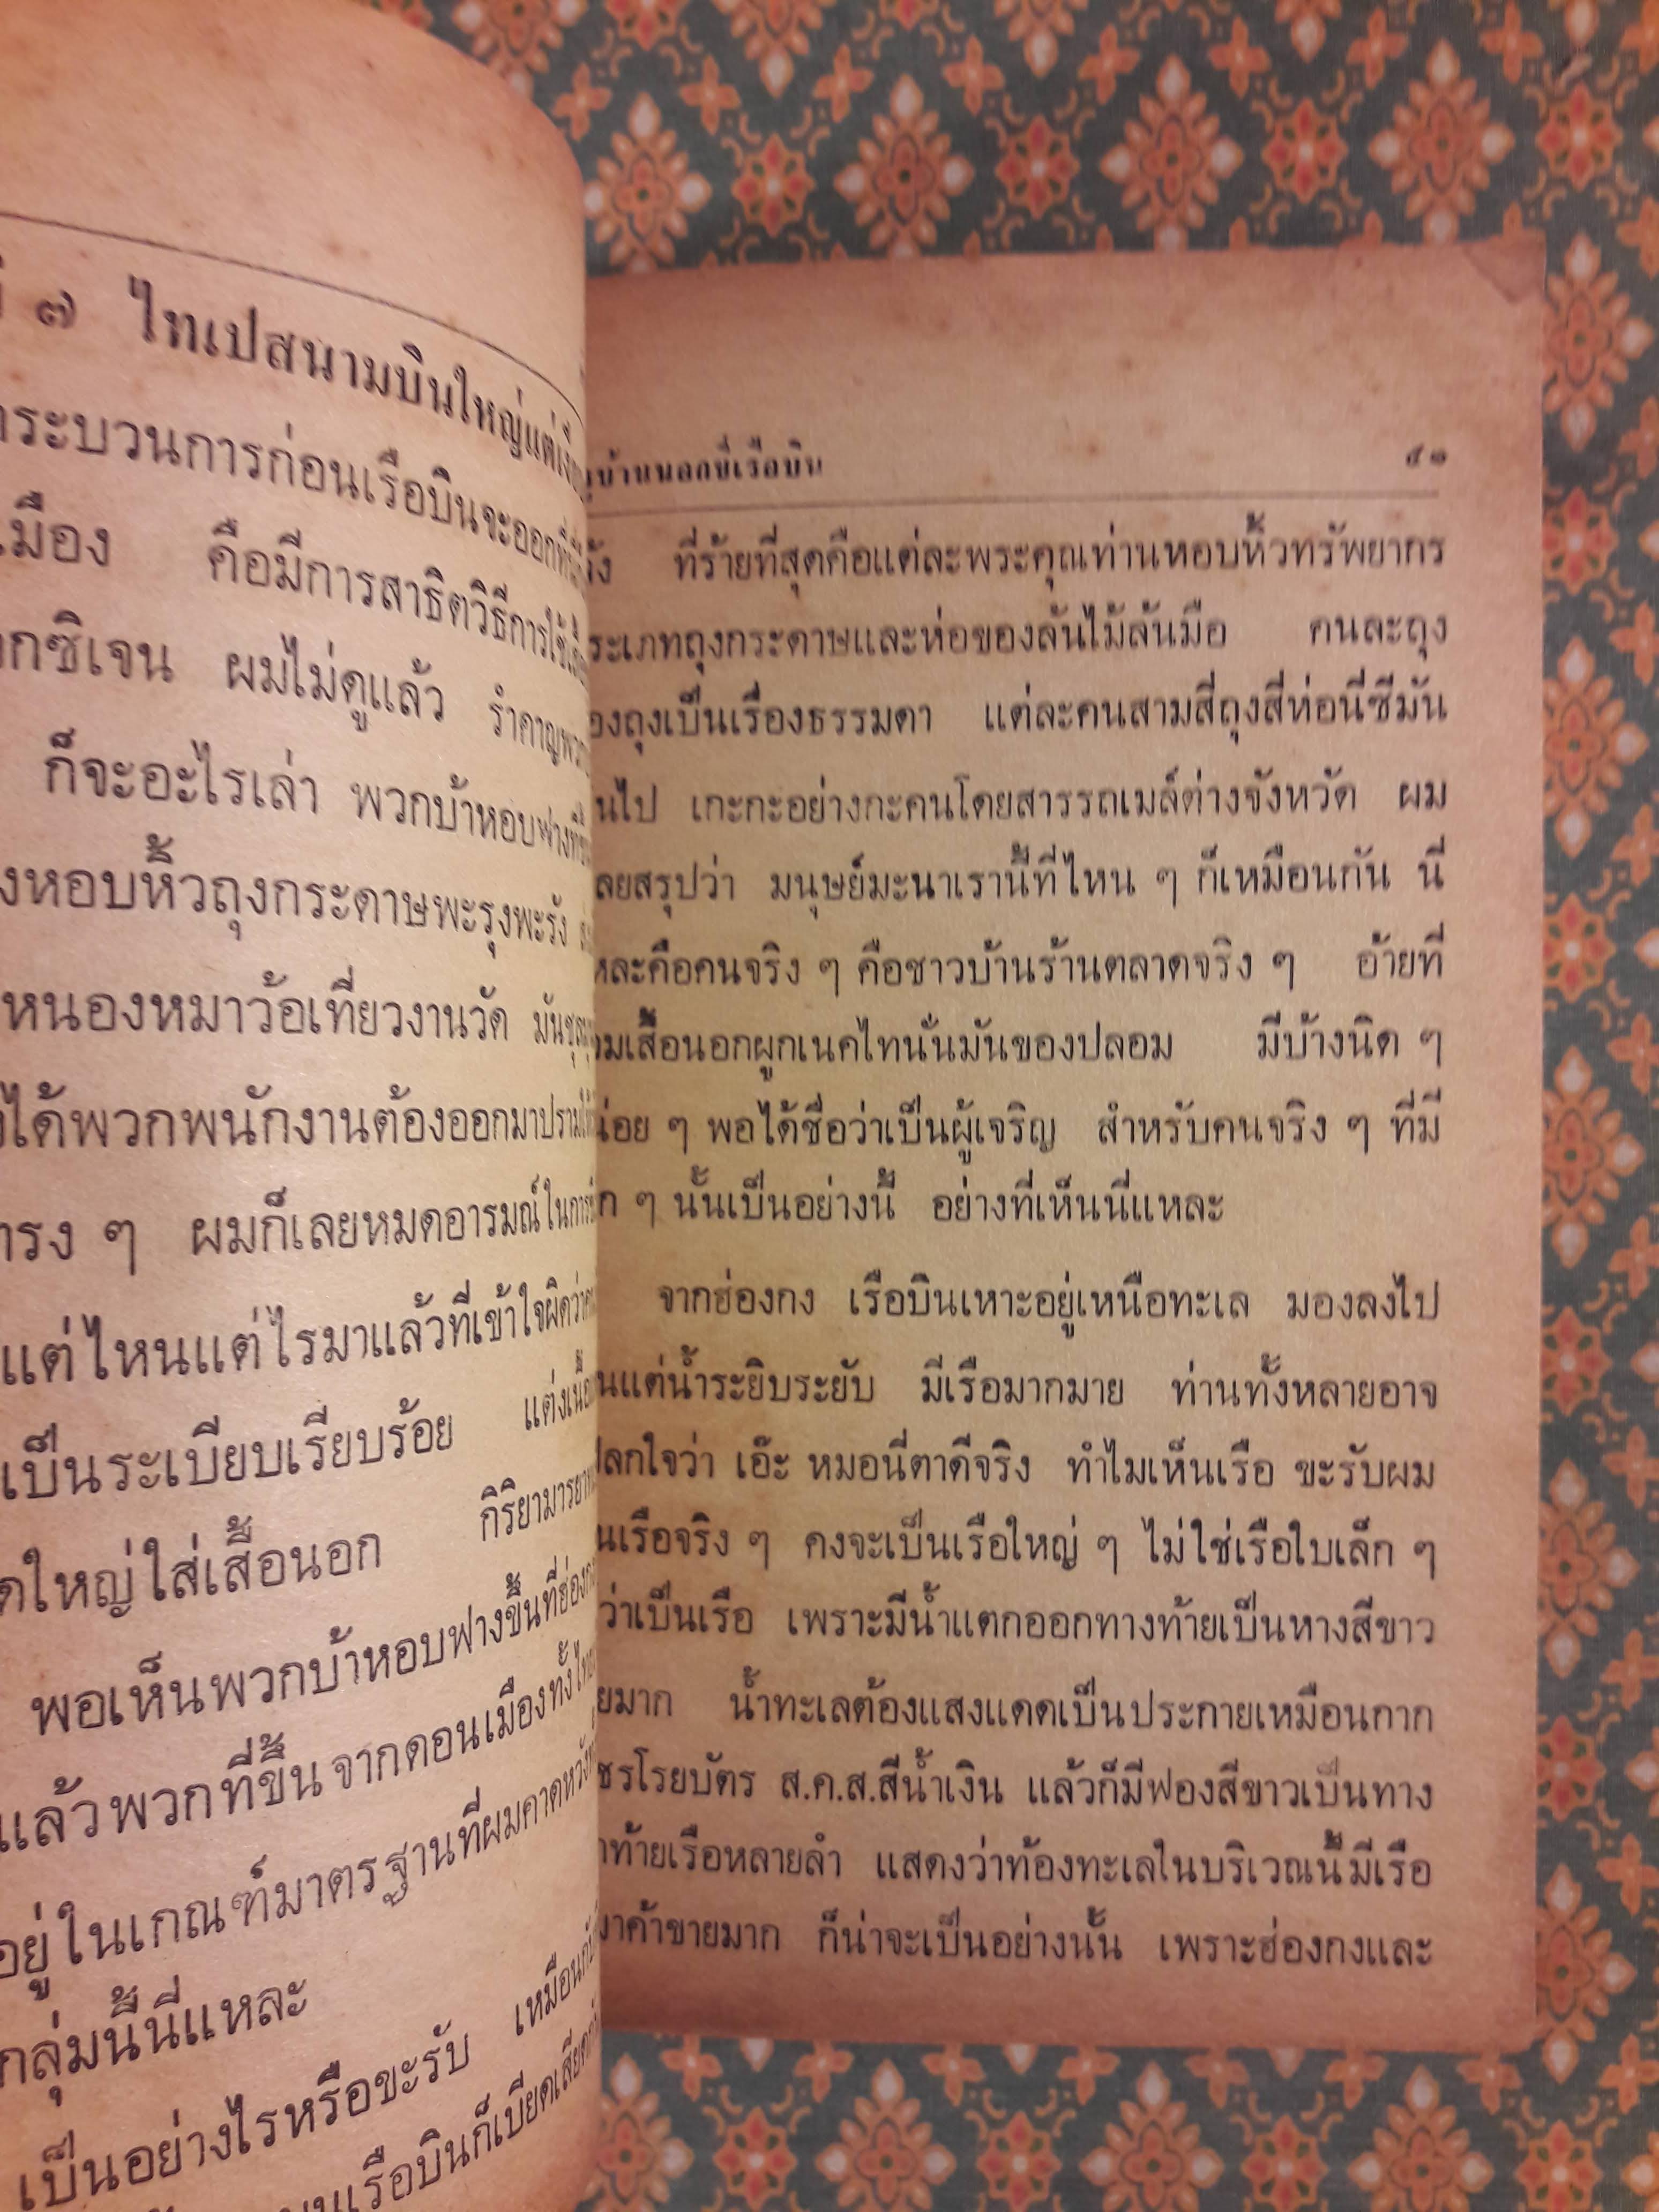 ๗ ไทเปสนามบินใหญ่แต่
กระบวนการก่อนเรือบินจะออก
เมือง คือมีการสาธิตวิธีการใช้
ผมไม่ดูแล้ว รำคาญพวก
ก็จะอะไรเล่า พวกบ้าหอบฟาง
หอบหิ้วถุงกระดาษพะรุงพะรัง
หนองหมาว้อเที่ยวงานวัด
ได้พวกพนักงานต้องออกมาปราม
ๆ ผมก็เลยหมดอารมณ์ในการ
แต่ไหนแต่ไรมาแล้วที่เข้าใจผิดว่า
เป็นระเบียบเรียบร้อย
ใหญ่ใส่เสื้อนอก กิริยามารยาท
พอเห็นพวกบ้าหอบฟางขึ้นที่ฮ่องกง
แล้วพวกที่ขึ้นจากดอนเมืองทั้งไทย
อยู่ในเกณฑ์มาตรฐานที่ผมคาดหวัง
กลุ่มนี้นี่แหละ
เป็นอย่างไรหรือขะรับ เหมือนกับ
เรือบินก็เบียดเสียด
บ้านนอกขี่เรือบิน
ที่ร้ายที่สุดคือแต่ละพระคุณท่านหอบหิ้วทรัพยากร
ถุงกระดาษและห่อของล้นไม้ล้นมือ คนละถุง
ถุงเป็นเรื่องธรรมดา แต่ละคนสามสี่ถุงสี่ห่อนี่ซีมัน
ไป เกะกะอย่างกะคนโดยสารรถเมล์ต่างจังหวัด ผม
สรุปว่า มนุษย์มะนาเรานี้ที่ไหน ๆ ก็เหมือนกัน นี่
คือคนจริง ๆ คือชาวบ้านร้านตลาดจริง ๆ อ้ายที่
เสื้อนอกผูกเนคไทนั่นมันของปลอม มีบ้างนิด ๆ
ๆ พอได้ชื่อว่าเป็นผู้เจริญ สำหรับคนจริง ๆ ที่มี
ๆ นั้นเป็นอย่างนี้ อย่างที่เห็นนี่แหละ
จากฮ่องกง เรือบินเหาะอยู่เหนือทะเล มองลงไป
แต่น้ำระยิบระยับ มีเรือมากมาย ท่านทั้งหลายอาจ
ใจว่า เอ๊ะ หมอนี่ตาดีจริง ทำไมเห็นเรือ ขะรับผม
เรือจริง ๆ คงจะเป็นเรือใหญ่ ๆ ไม่ใช่เรือใบเล็ก ๆ
ว่าเป็นเรือ เพราะมีน้ำแตกออกทางท้ายเป็นหางสีขาว
มาก น้ำทะเลต้องแสงแดดเป็นประกายเหมือนกาก
โรยบัตร ส.ค.ส.สีน้ำเงิน แล้วก็มีฟองสีขาวเป็นทาง
ท้ายเรือหลายลำ แสดงว่าท้องทะเลในบริเวณนี้มีเรือ
ค้าขายมาก ก็น่าจะเป็นอย่างนั้น เพราะฮ่องกงและ